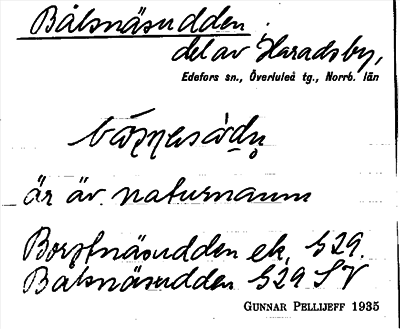 Bålsnäsudden
del av Haradsby,
Edefors sn., Överluleå tg., Norrb. län
är äv. naturnamn
Borgtnäsudden ek. 529.
Balsnäsudden 529 SV
GUNNAR PELLIJEFF 1935